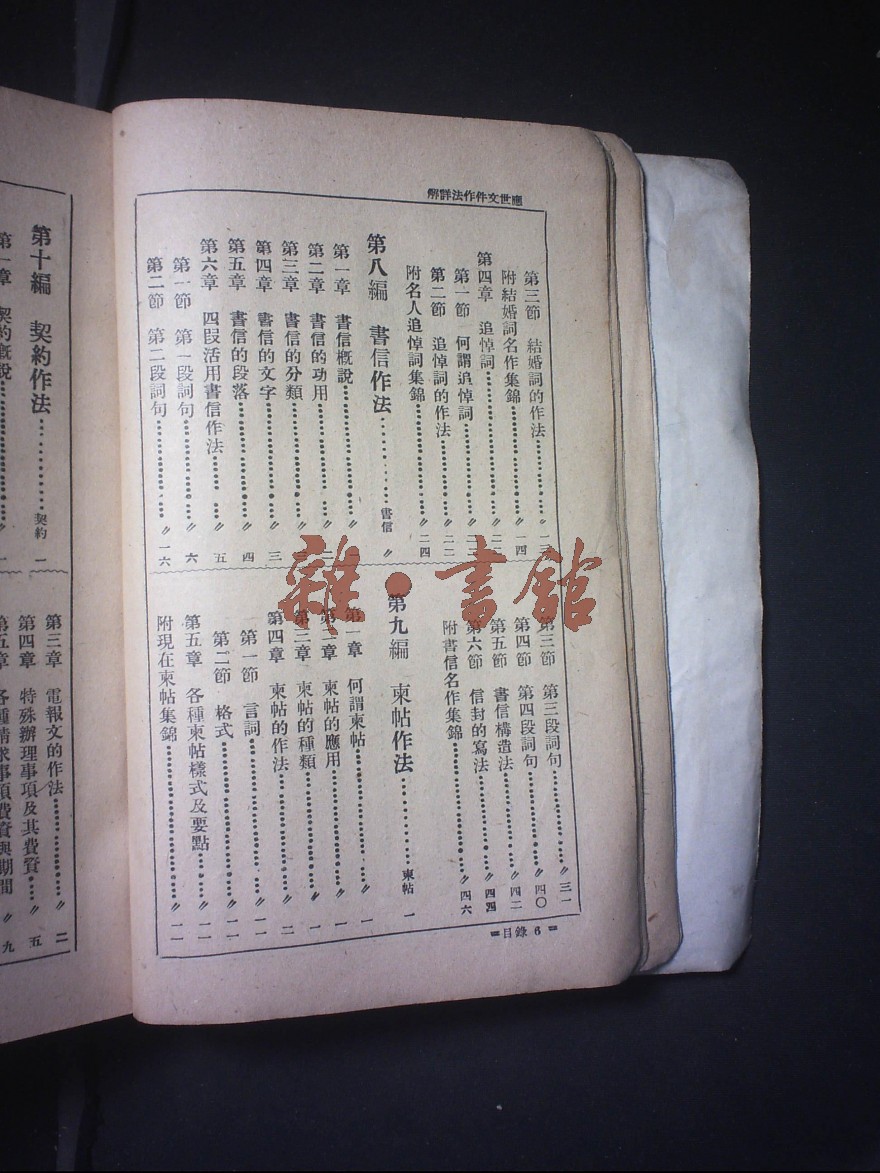 應世文件作法詳解
第三節 結婚詞的作法…………〃一三
附結婚詞名作集錦…………〃一四
第四章 追悼詞…………〃二二
第一節 何謂追悼詞…………〃二二
第二節 追悼詞的作法…………〃二二
附名人追悼詞集錦…………〃二四
第八編 書信作法…………書信〃
第一章 書信概說…………〃
第二章 書信的功用…………〃二
第三章 書信的分類…………〃
第四章 書信的文字…………〃三
第五章 書信的段落…………〃四
第六章 四段活用書信作法……〃五
第一節 第一段詞句…………〃六
第二節 第二段詞句…………〃一六
第三節 第三段詞句…………〃三一
第四節 第四段詞句…………〃四〇
第五節 書信構造法…………〃四二
第六節 信封的寫法…………〃四四
附書信名作集錦…………〃四六
第九編 柬帖作法…………柬帖 一
第一章 何謂柬帖…………〃一
第二章 柬帖的應用…………〃一
第三章 柬帖的種類…………〃一
第四章 柬帖的作法…………〃二
第一節 言詞…………〃二
第二節 格式…………〃二
第五章 各種柬帖樣式及要點……〃二
附現在柬帖集錦…………〃二
=目錄 6=
第十編 契約作法…………契約 一
第一章 契約概說…………〃一
第三章 電報文的作法…………〃二
第四章 特殊辦理事項及其費資……〃五
第五章 各種請求事項費資與期間 〃九
雜·書館